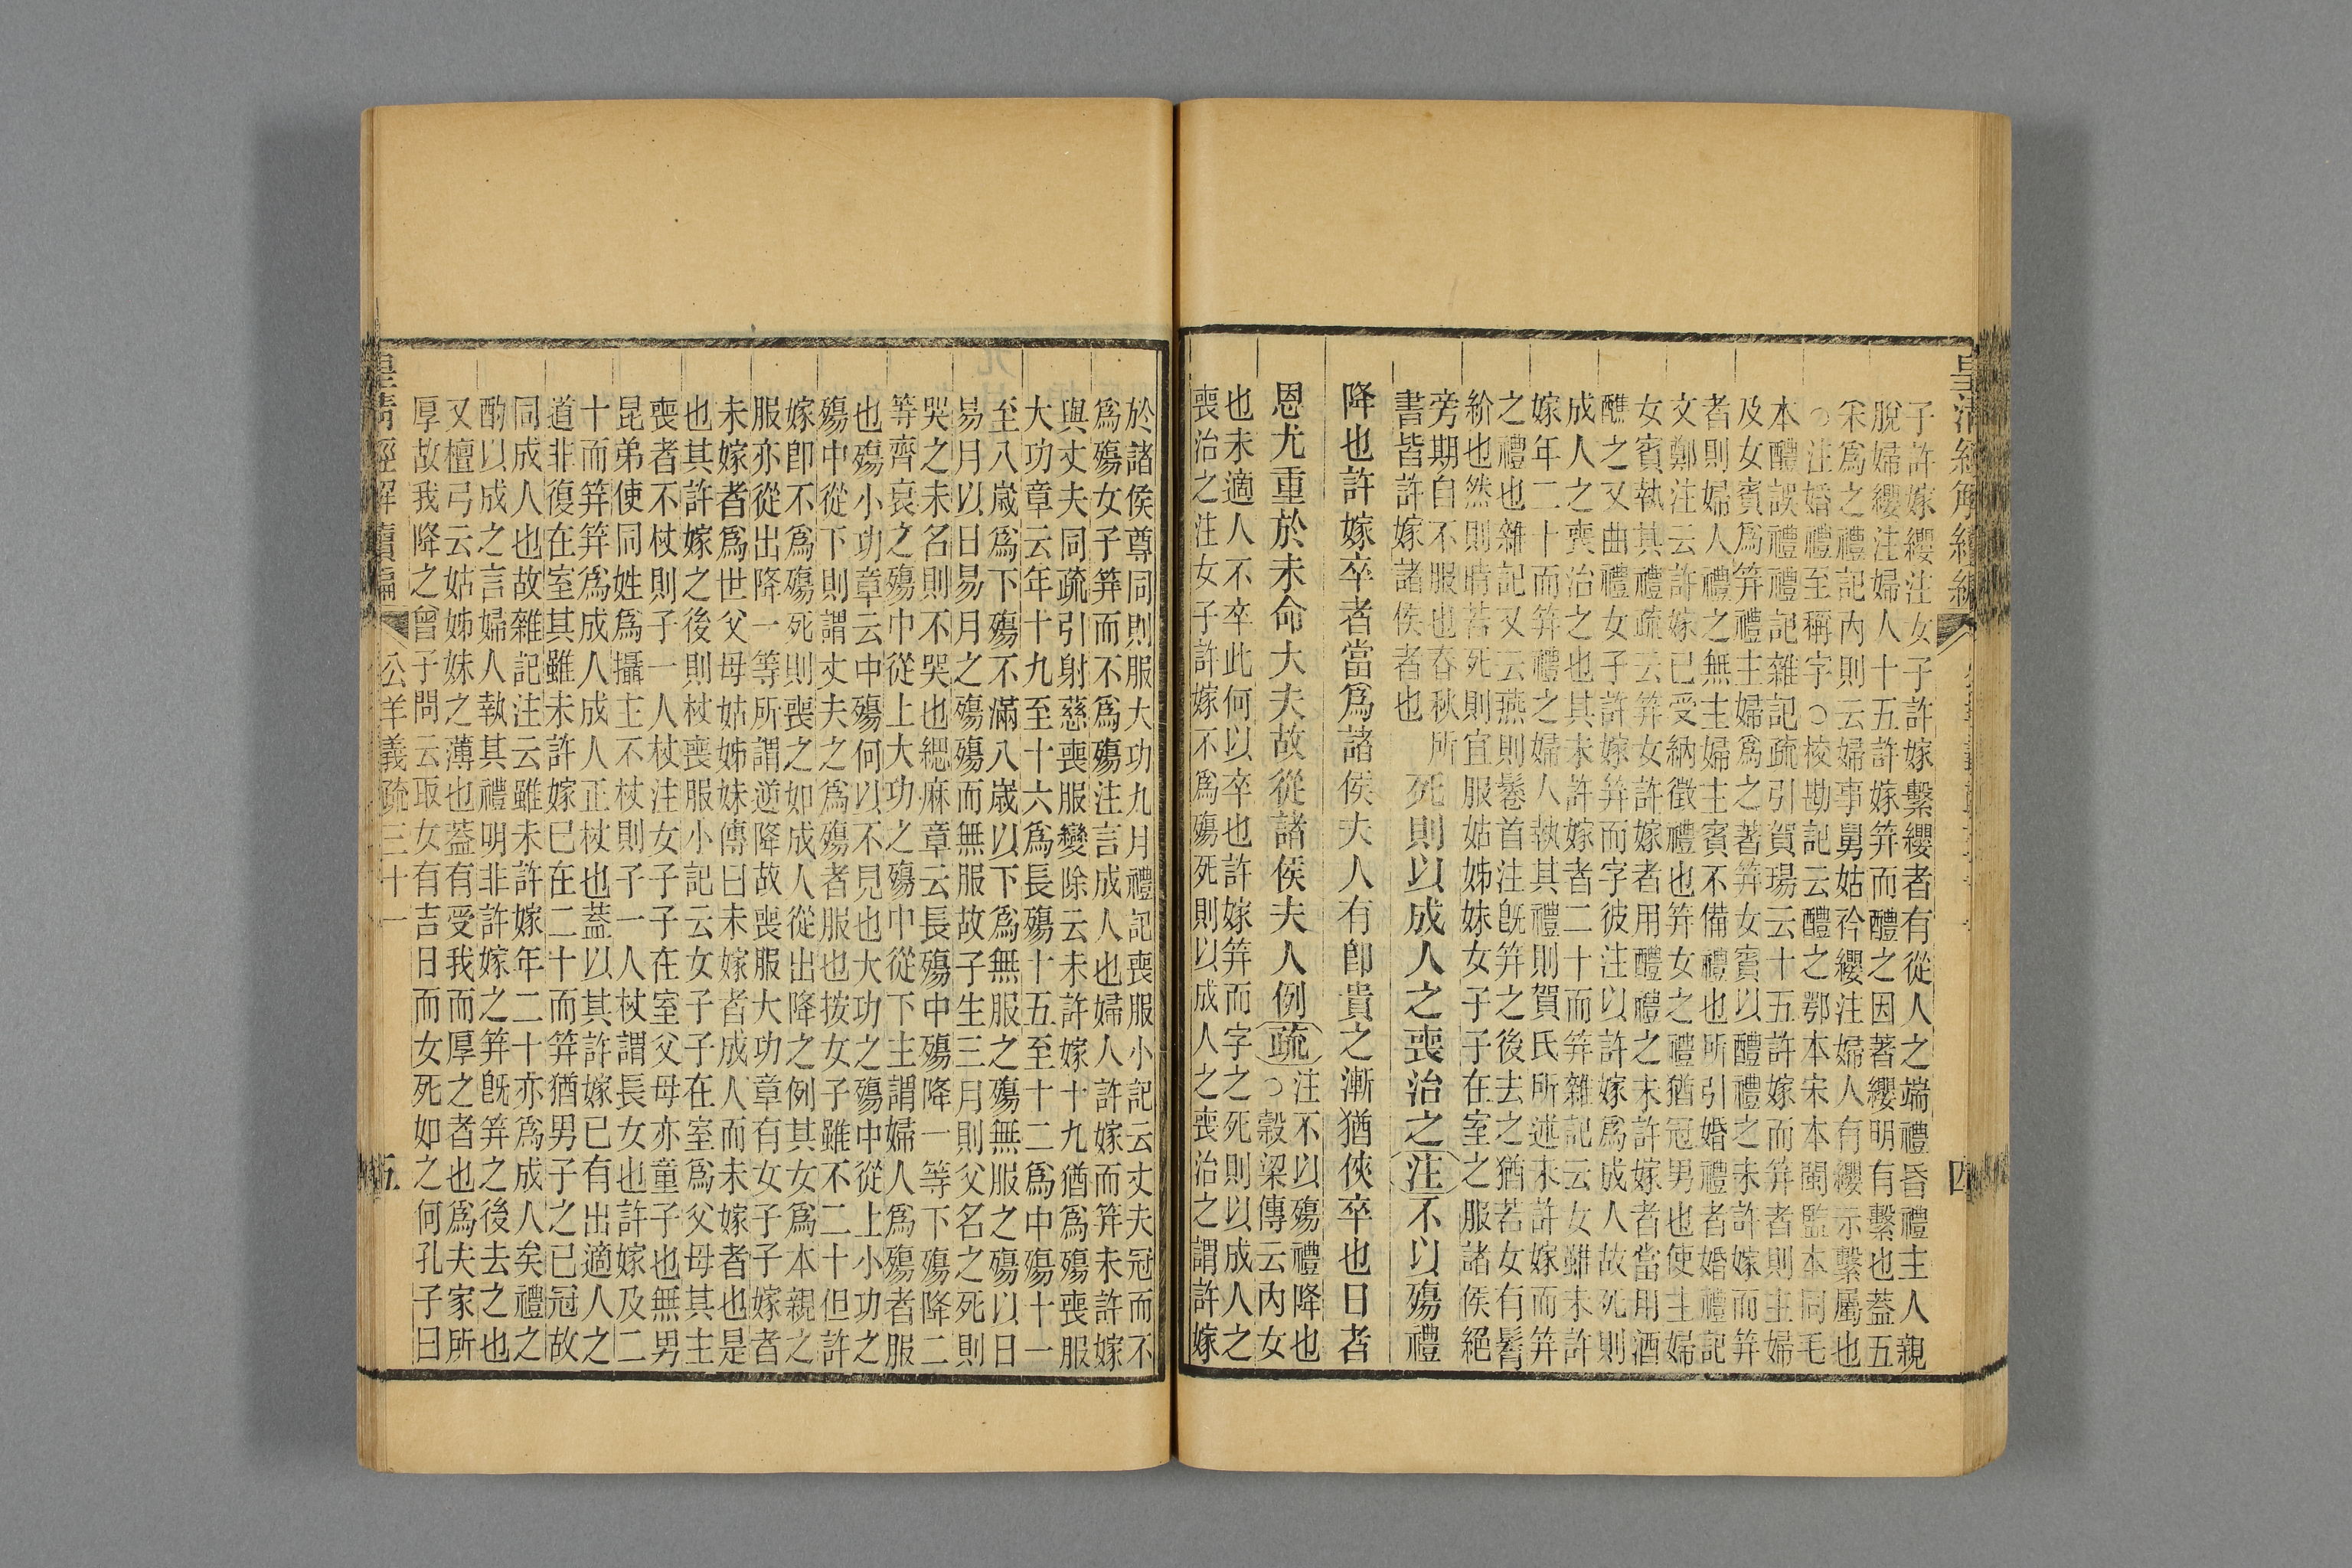 子許嫁纓注女子許嫁繫纓者有從人之端禮昏禮主人親
脫婦纓注婦人十五許嫁笄而醴之因著纓明有繫也蓋五
采爲之禮記內則云婦事舅姑衿纓注婦人有纓示繫屬也
○注婚禮至稱字○校勘記云醴之鄂本宋本閩監本同毛
本醴誤禮禮記雜記疏引賀瑒云十五許嫁而笄者則主婦
及女賓爲笄禮主婦爲之著笄女賓以醴禮之未許嫁而笄
者則婦人禮之無主婦主賓不備禮也所引婚禮者婚禮記
文鄭注云許嫁已受納徵禮也笄女之禮猶冠男也使主婦
女賓執其禮疏云笄女許嫁者用醴禮之未許嫁者當用酒
醮之又曲禮女子許嫁笄而字彼注以許嫁爲成人故死則
成人之喪治之也其未許嫁者二十而笄雜記云女雖未許
嫁年二十而笄禮之婦人執其禮則賀氏所述未許嫁而笄
之禮也雜記又云燕則鬈首注旣笄之後去之猶若女有鬌
紒也然則時若死則宜服姑姊妹女子子在室之服諸侯絕
旁期自不服也春秋所
書皆許嫁諸侯者也
死則以成人之喪治之注不以殤禮
降也許嫁卒者當爲諸侯夫人有卽貴之漸猶俠卒也日者
恩尤重於未命大夫故從諸侯夫人例疏
注不以殤禮降也
○榖梁傳云內女
也未適人不卒此何以卒也許嫁笄而字之死則以成人之
喪治之注女子許嫁不爲殤死則以成人之喪治之謂許嫁
於諸侯尊同則服大功九月禮記喪服小記云丈夫冠而不
爲殤女子笄而不爲殤注言成人也婦人許嫁而笄未許嫁
與丈夫同疏引射慈喪服變除云未許嫁十九猶爲殤喪服
大功章云年十九至十六爲長殤十五至十二爲中殤十一
至八歲爲下殤不滿八歲以下爲無服之殤無服之殤以日
易月以日易月之殤殤而無服故子生三月則父名之死則
哭之未名則不哭也緦麻章云長殤中殤降一等下殤降二
等齊衰之殤中從上大功之殤中從下主謂婦人爲殤者服
也殤小功章云中殤何以不見也大功之殤中從上小功之
殤中從下則謂丈夫之爲殤者服也按女子雖不二十但許
嫁卽不爲殤死則喪之如成人從出降之例其女爲本親之
服亦從出降一等所謂逆降故喪服大功章有女子子嫁者
未嫁者爲世父母姑姊妹傳曰未嫁者成人而未嫁者也是
也其許嫁之後則杖喪服小記云女子子在室爲父母其主
喪者不杖則子一人杖注女子子在室父母亦童子也無男
昆弟使同姓爲攝主不杖則子一人杖謂長女也許嫁及二
十而笄笄爲成人成人正杖也蓋以其許嫁已有出適人之
道非復在室其雖未許嫁已在二十而笄猶男子之已冠故
同成人也故雜記注云雖未許嫁年二十亦爲成人矣禮之
酌以成之言婦人執其禮明非許嫁之笄旣笄之後去之也
又檀弓云姑姊妹之薄也蓋有受我而厚之者也爲夫家所
厚故我降之曾子問云取女有吉日而女死如之何孔子曰
皇淸經解續編 公羊義疏三十一 五